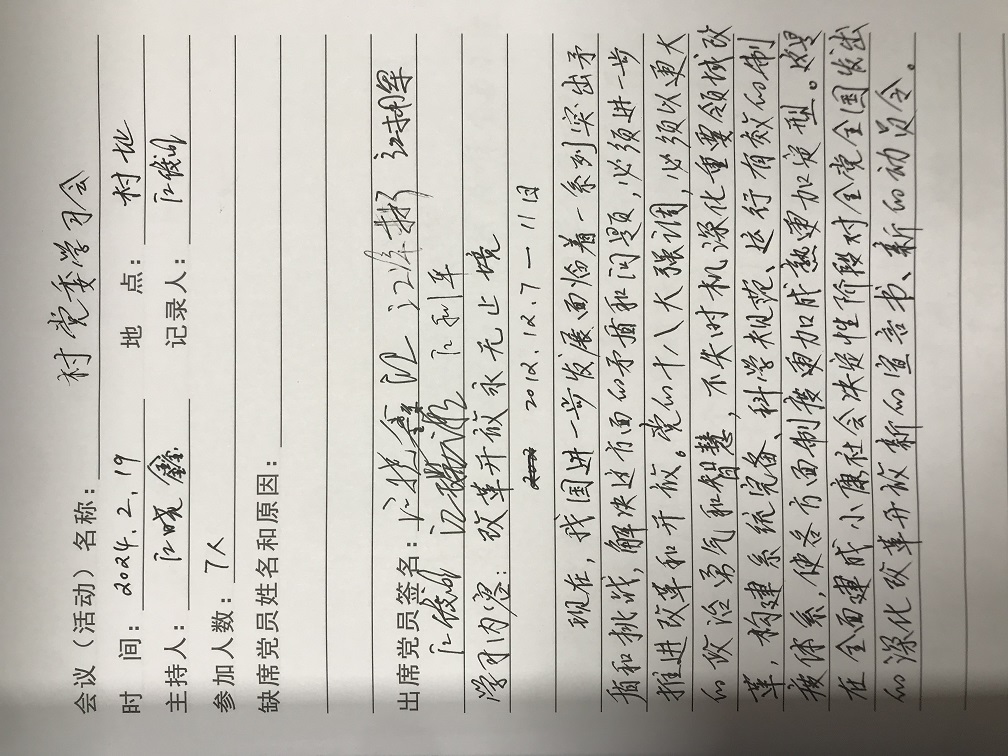 会议（活动）名称：村党委学习会
时　间：2024.2.19　地　点：村址
主持人：江晓鑫　记录人：江俊
参加人数：7人
缺席党员姓名和原因：
出席党员签名：江晓鑫
江俊　江利军
学习内容：改革开放永无止境
2012.12.7—11日
现在，我国进一步发展面临着一系列突出矛
盾和挑战，解决这方面的矛盾和问题，必须进一步
推进改革和开放。党的十八大强调，必须以更大
的政治勇气和智慧，不失时机深化重要领域改
革，构建系统完备、科学规范、运行有效的制
度体系，使各方面制度更加成熟更加定型。这是
在全面建成小康社会决定性阶段对全党全国发出
的深化改革开放新的宣言书、新的动员令。